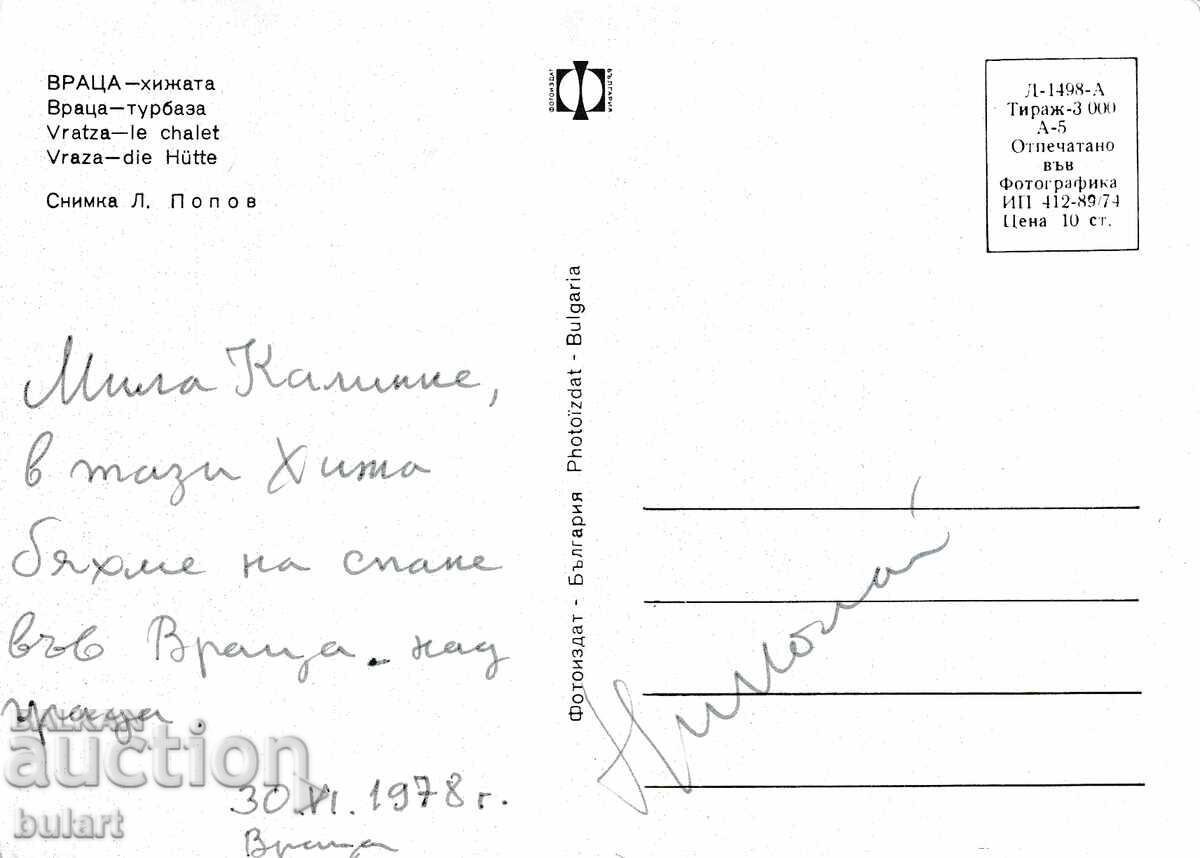 ВРАЦА—хижата
Враца—турбаза
Vratza—le chalet
Vraza—die Hütte
Снимка Л. Попов
ФОТОИЗДАТ
БЪЛГАРИЯ
Л-1498-А
Тираж-3 000
А-5
Отпечатано
във
Фотографика
ИП 412-89/74
Цена 10 ст.
Мила Калинке,
в тази Хижа
бяхме на спане
във Враца. над
града.
30.XI.1978 г.
Враца
Фотоиздат - България Photoïzdat - Bulgaria
Николай
BALKAN
auction
bulart